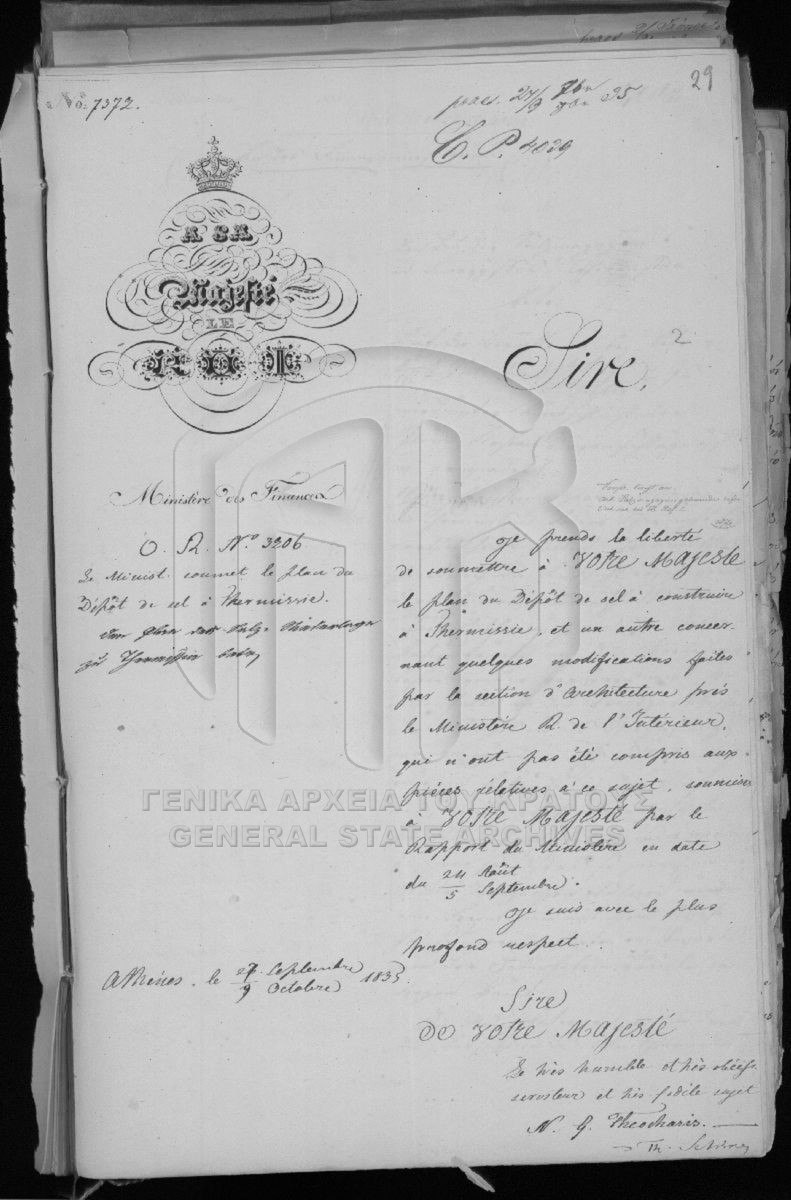 29
No. 7372.
praes. 27/9 7br 35
C. P. 4029
A SA
Majesté
LE
ROI
2
Sire,
Ministère des Finances
O. R. No. 3206
Le Minist. soumet le plan du
Dépôt de sel à Thermissie.
Je prends la liberté
de soumettre à Votre Majesté
le plan du Dépôt de sel à construire
à Thermissie, et un autre concer
nant quelques modifications faites
par la section d'Architecture près
le Ministère R. de l'Intérieur,
qui n'ont pas été compris aux
pièces rélatives à ce sujet, soumises
à Votre Majesté par le
Rapport du Ministère en date
du 24 Août
5 Septembre.
Je suis avec le plus
profond respect.
Athènes, le 27 Septembre 1835
9 Octobre
Sire
De Votre Majesté
Le très humble et très obéiss.
serviteur et très fidèle sujet
N. G. Theocharis.
ΓΕΝΙΚΑ ΑΡΧΕΙΑ ΤΟΥ ΚΡΑΤΟΥΣ
GENERAL STATE ARCHIVES